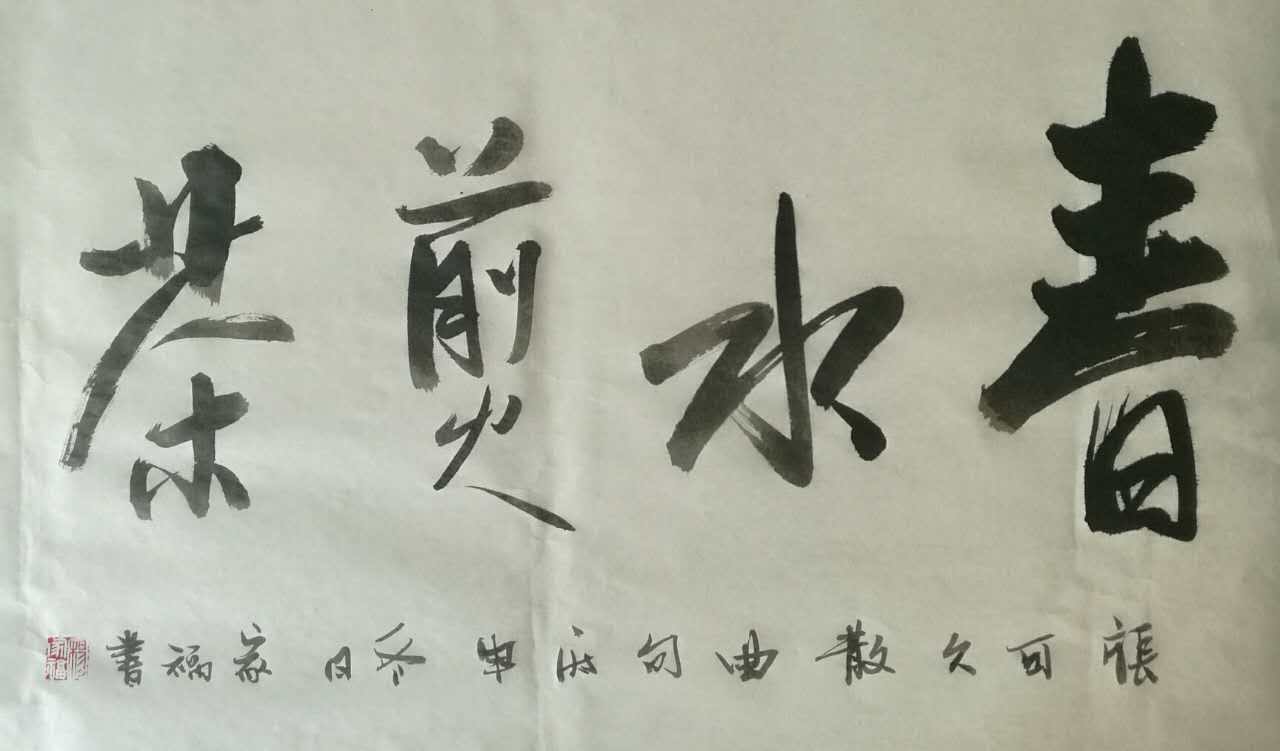 春水煎茶
張可久散曲句丙申冬日家福書